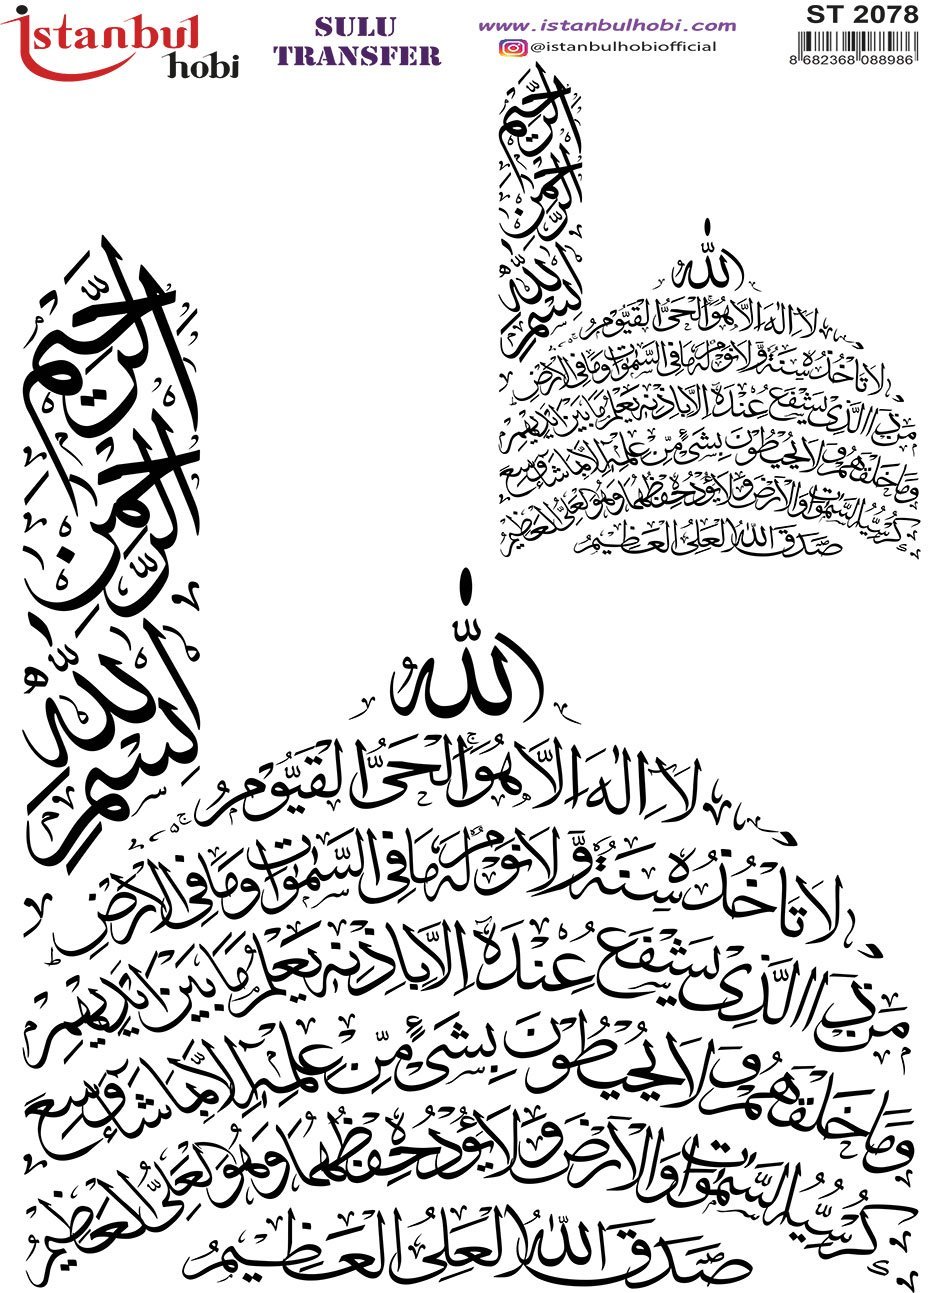 istanbul
hobi
SULU
TRANSFER
www.istanbulhobi.com
@istanbulhobiofficial
ST 2078
8 682368 088986
بسم الله الرحمن الرحيم
الله
لا اله الا هو الحى القيوم
لا تاخذه سنة ولا نوم له ما فى السموات وما فى الارض
من ذا الذى يشفع عنده الا باذنه يعلم ما بين ايديهم
وما خلفهم ولا يحيطون بشىء من علمه الا بما شاء وسع
كرسيه السموات والارض ولا يؤده حفظهما وهو العلى العظيم
صدق الله العلى العظيم
بسم الله الرحمن الرحيم
الله
لا اله الا هو الحى القيوم
لا تاخذه سنة ولا نوم له ما فى السموات وما فى الارض
من ذا الذى يشفع عنده الا باذنه يعلم ما بين ايديهم
وما خلفهم ولا يحيطون بشىء من علمه الا بما شاء وسع
كرسيه السموات والارض ولا يؤده حفظهما وهو العلى العظيم
صدق الله العلى العظيم